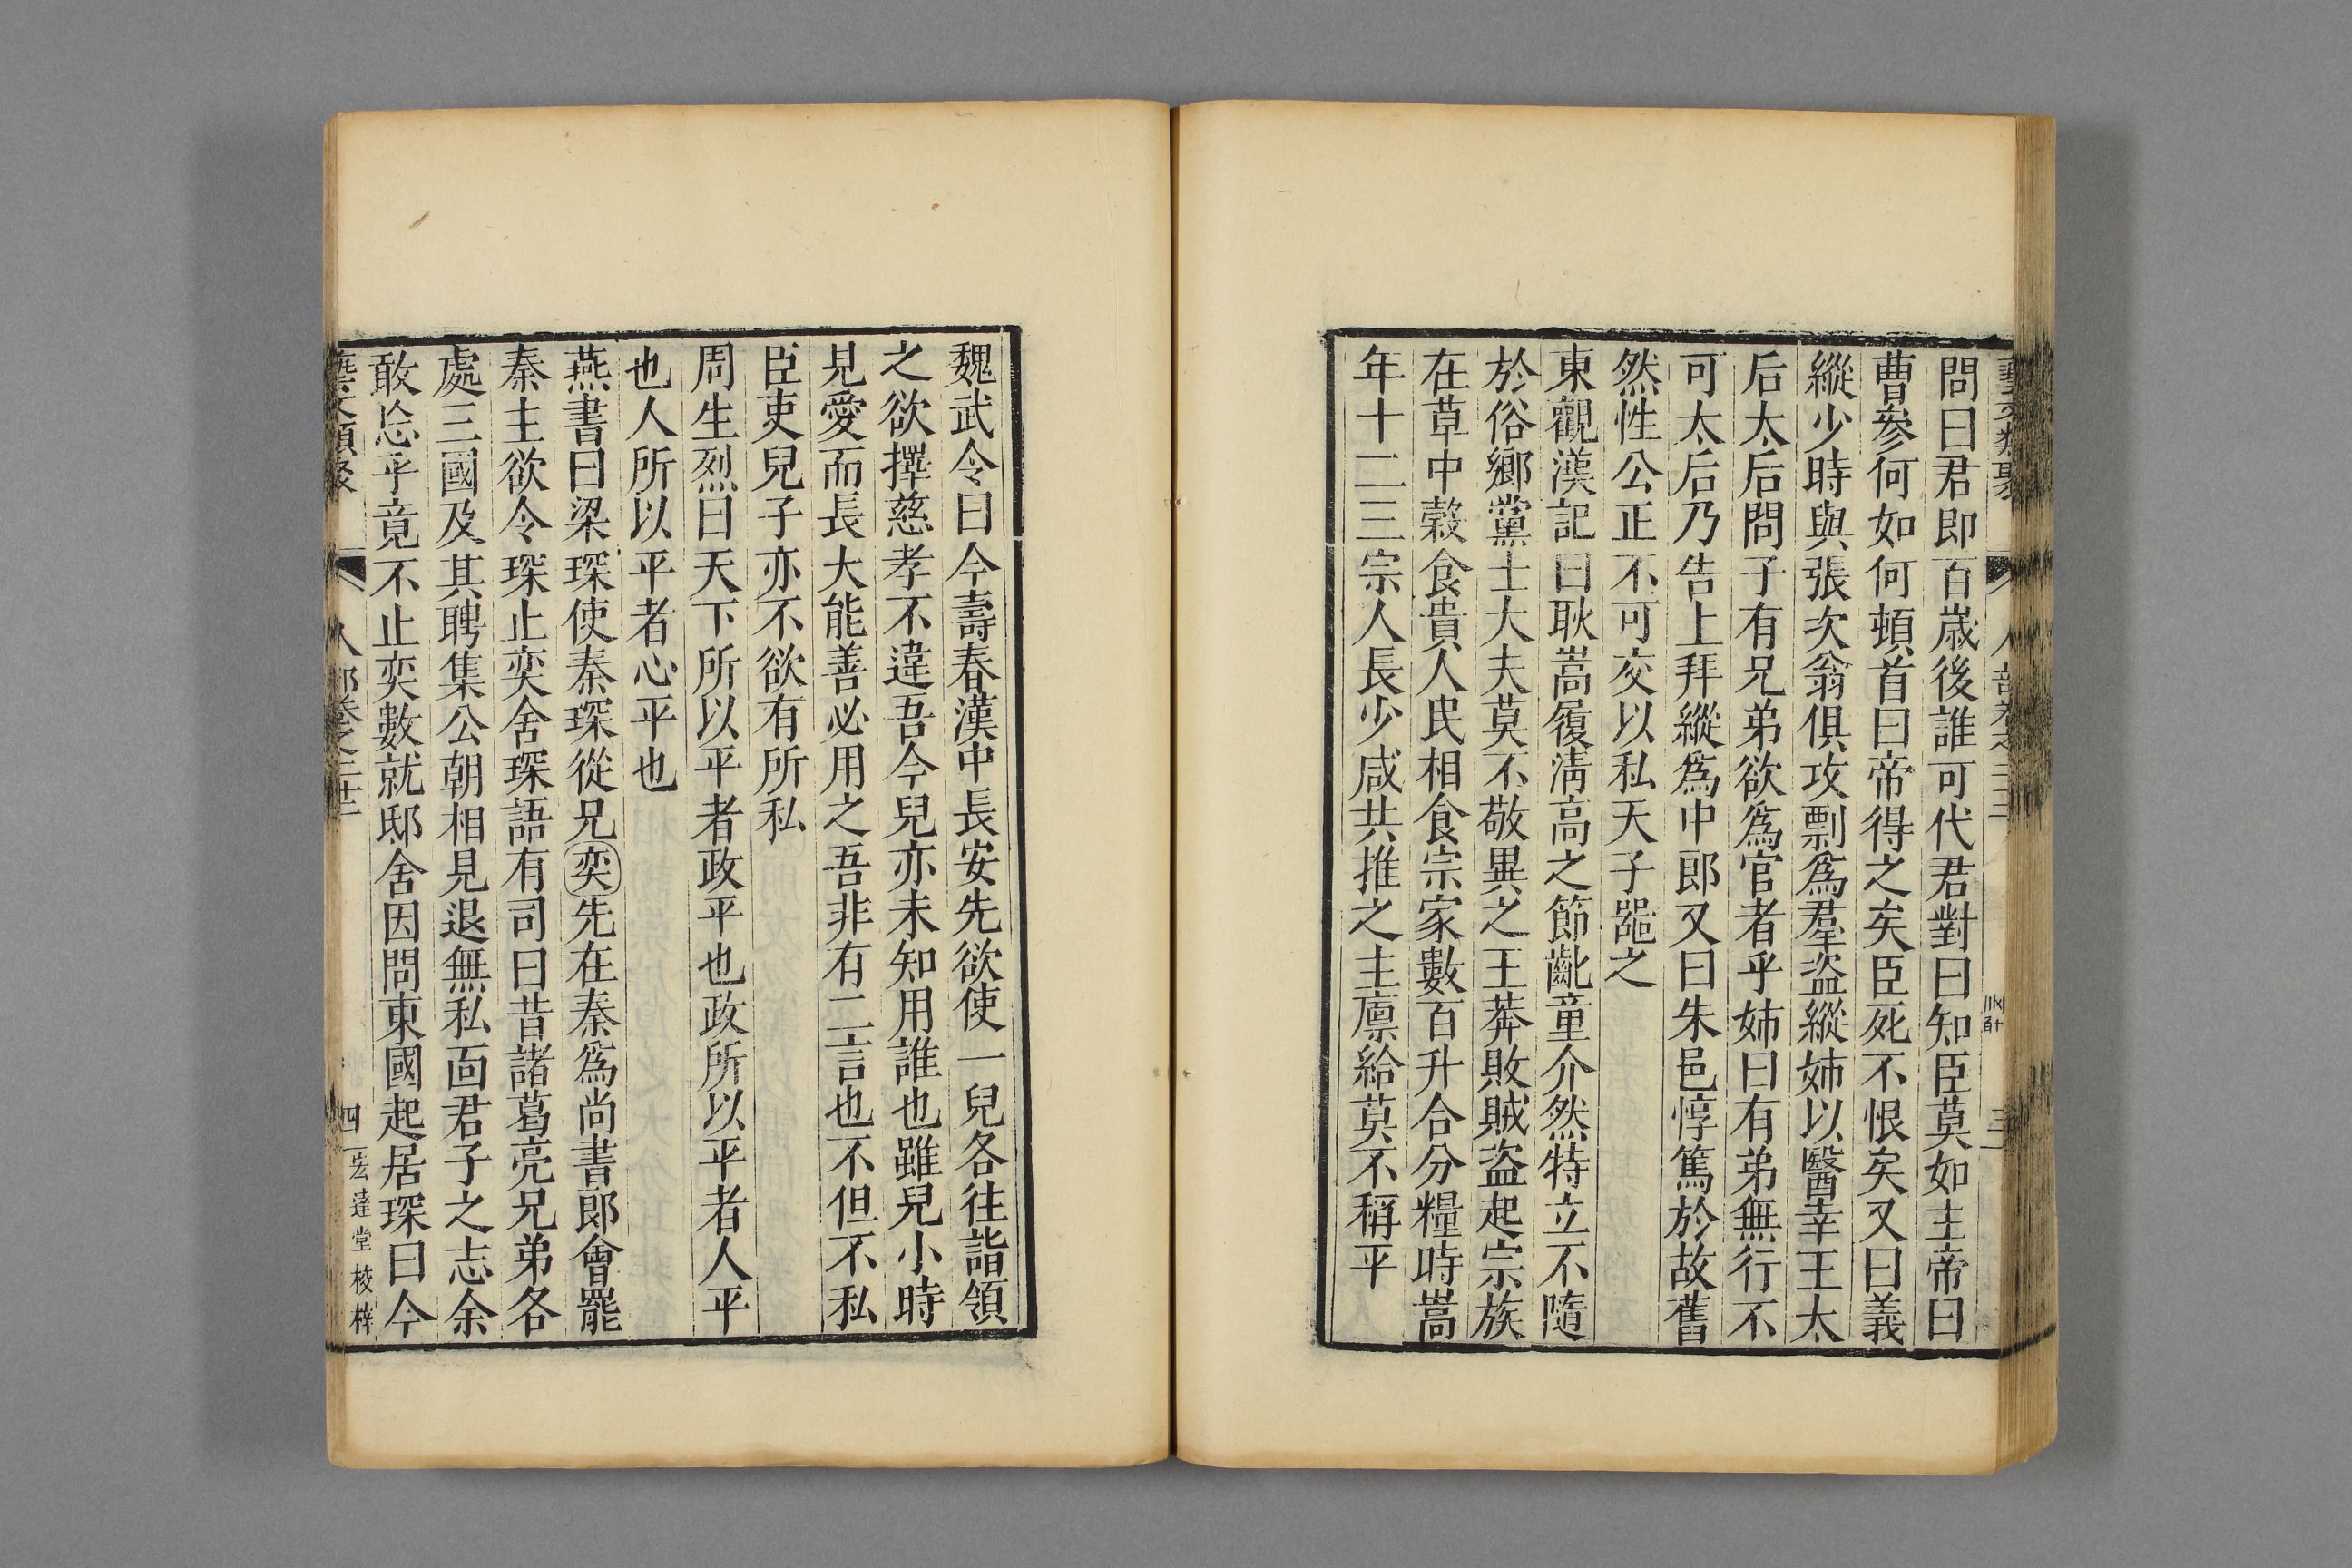 問曰君即百歲後誰可代君對曰知臣莫如主帝曰
曹參何如何頓首曰帝得之矣臣死不恨矣又曰義
縱少時與張次翁俱攻剽為羣盜縱姊以醫幸王太
后太后問子有兄弟欲為官者乎姊曰有弟無行不
可太后乃告上拜縱為中郎又曰朱邑惇篤於故舊
然性公正不可交以私天子器之
東觀漢記曰耿嵩履清高之節齔童介然特立不隨
於俗鄉黨士大夫莫不敬異之王莽敗賊盜起宗族
在草中穀食貴人民相食宗家數百升合分糧時嵩
年十二三宗人長少咸共推之主廩給莫不稱平
魏武令曰今壽春漢中長安先欲使一兒各往詣領
之欲擇慈孝不違吾令兒亦未知用誰也雖兒小時
見愛而長大能善必用之吾非有二言也不但不私
臣吏兒子亦不欲有所私
周生烈曰天下所以平者政平也政所以平者人平
也人所以平者心平也
燕書曰梁琛使秦琛從兄奕先在秦為尚書郎會罷
秦主欲令琛止奕舍琛語有司曰昔諸葛亮兄弟各
處三國及其聘集公朝相見退無私面君子之志余
敢忘乎竟不止奕數就邸舍因問東國起居琛曰今
四 宏達堂校梓